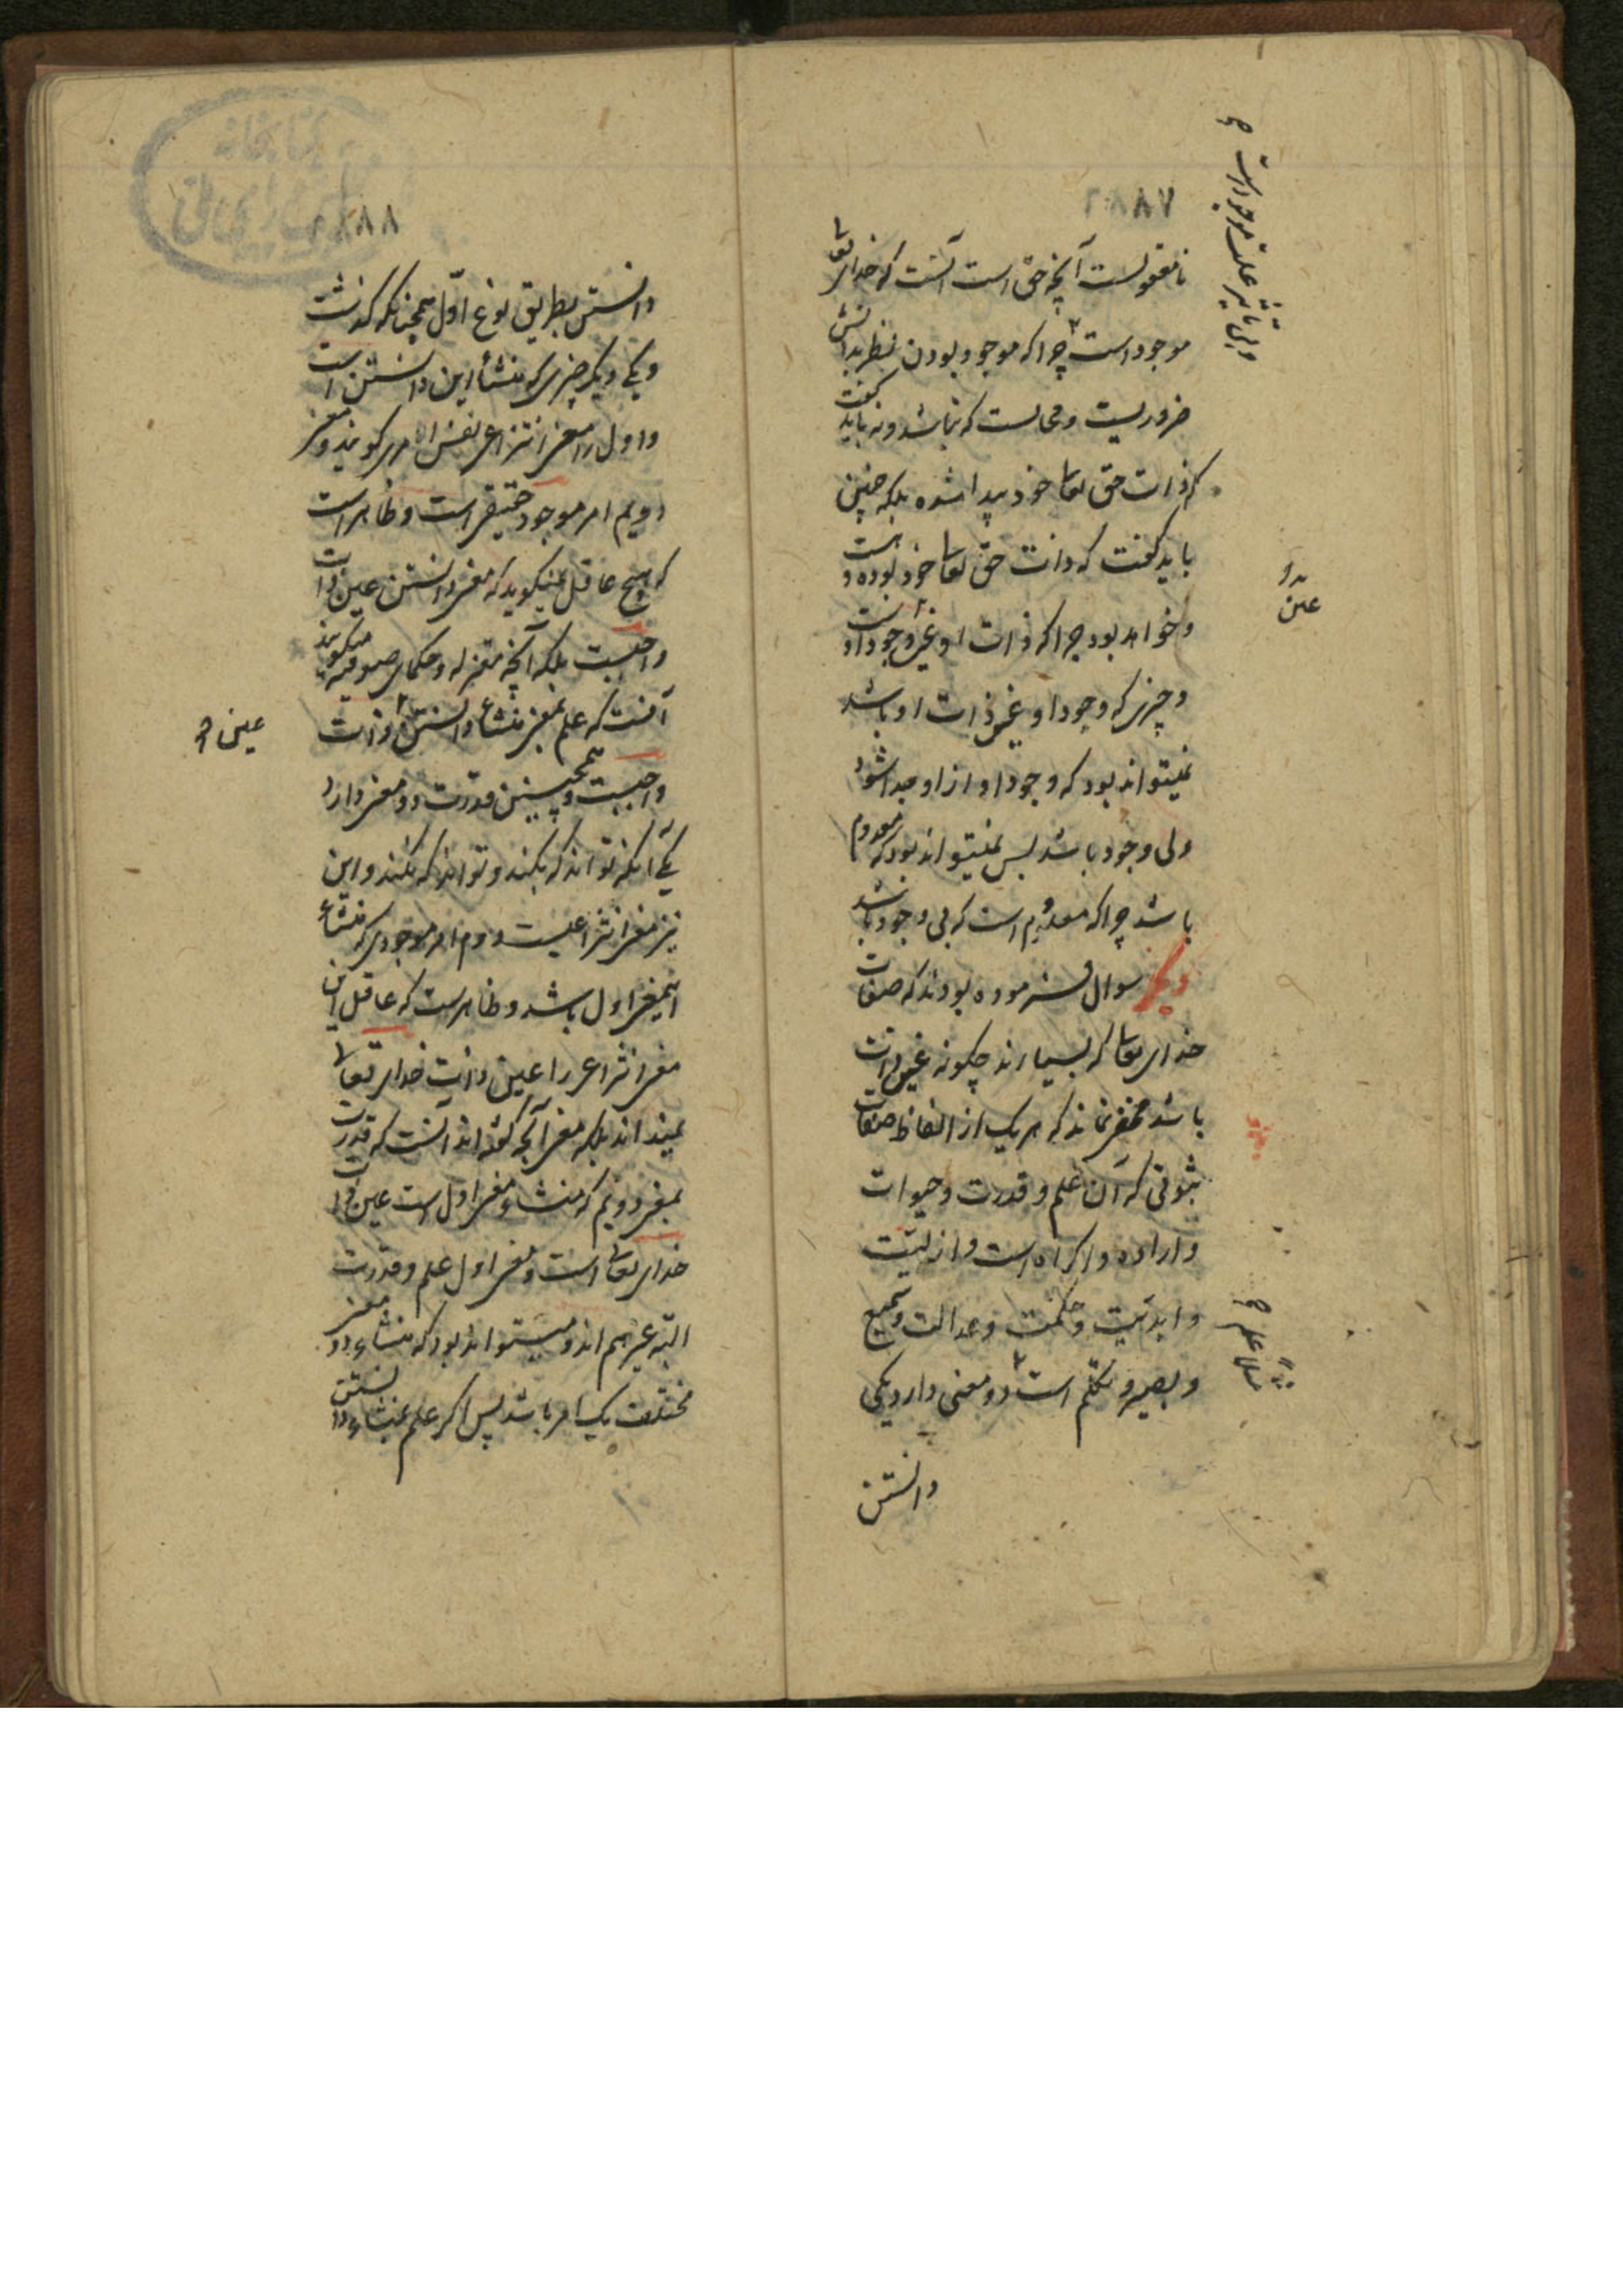 ۲۸۸۷
نامعقولست آنچه حق است آنست که خدای تعا
موجود است چرا که موجود بودن نظر بذاتش
ضروریست و محالست که نباشد و نه باید گفت
که ذات حق تعا خود پیدا شده بلکه چنین
باید گفت که ذات حق تعا خود بوده و هست
و خواهد بود چرا که ذات او غیر وجود او است
و چیزی که وجود او غیر ذات او باشد
نمیتواند بود که وجود او از او جدا شود
و بی وجود باشد پس نمیتواند بود که معدوم
باشد چرا که معدوم است که بی وجود باشد
دیگر سوال فرموده بودند که صفات
خدای تعا که بسیارند چگونه عین ذات
باشد مخفی نماند که هر یک از الفاظ صفات
ثبوتی که آن علم و قدرت و حیوات
و اراده و اکراه است و ازلیت
و ابدیت و حکمت و عدالت و سمیع
و بصیر و تکلم است دو معنی دارد یکی
دانستن
عین
۲۸۸۸
دانستن بطریق نوع اول همچنانکه گذشت
و یکی دیگر چیزی که منشأ این دانستن است
و اول را معنی انتزاعی نفس الامری گویند و معنی
دویم امر موجود حقیقی است و ظاهر است
که هیچ عاقل نمیگوید که معنی دانستن عین ذات
واجبست بلکه آنچه معتزله و حکمای صوفیه میگویند
آنست که علم بمعنی منشاء دانستن ذات
واجبست و همچنین قدرت دو معنی دارد
یکی آنکه تواند که بکند و تواند که نکند و این
نیز معنی انتزاعیست دوم امر موجودی که منشاء
این معنی اول باشد و ظاهر است که عاقل این
معنی انتزاعی را عین ذات خدای تعا
نمیداند بلکه معنی آنچه گفته اند آنست که قدرت
بمعنی دویم که منشاء معنی اول است عین ذات
خدای تعا است و معنی اول علم و قدرت
البته غیر هم اند و میتواند بود که منشاء دو معنی
مختلف یک امر باشد پس اگر علم بمنشاء دانستن
عین